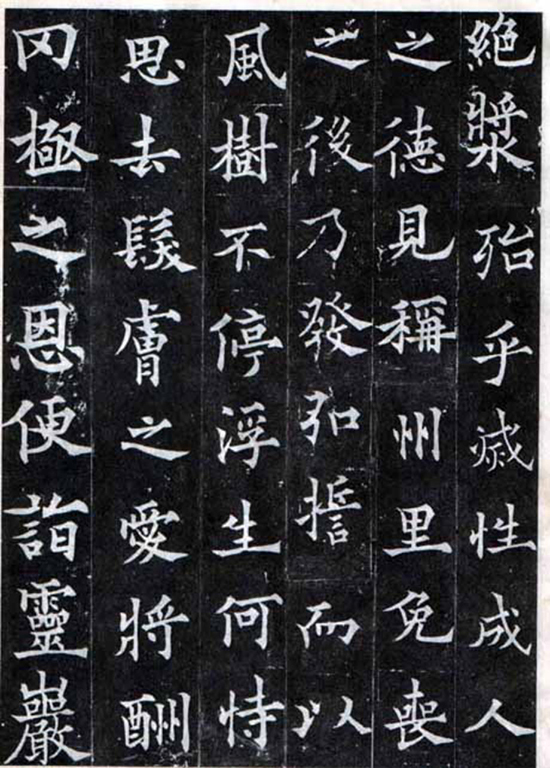 絕漿殆乎滅性成人
之德見稱州里免喪
之後乃發弘誓而以
風樹不停浮生何恃
思去髮膚之愛將酬
罔極之恩便詣靈巖